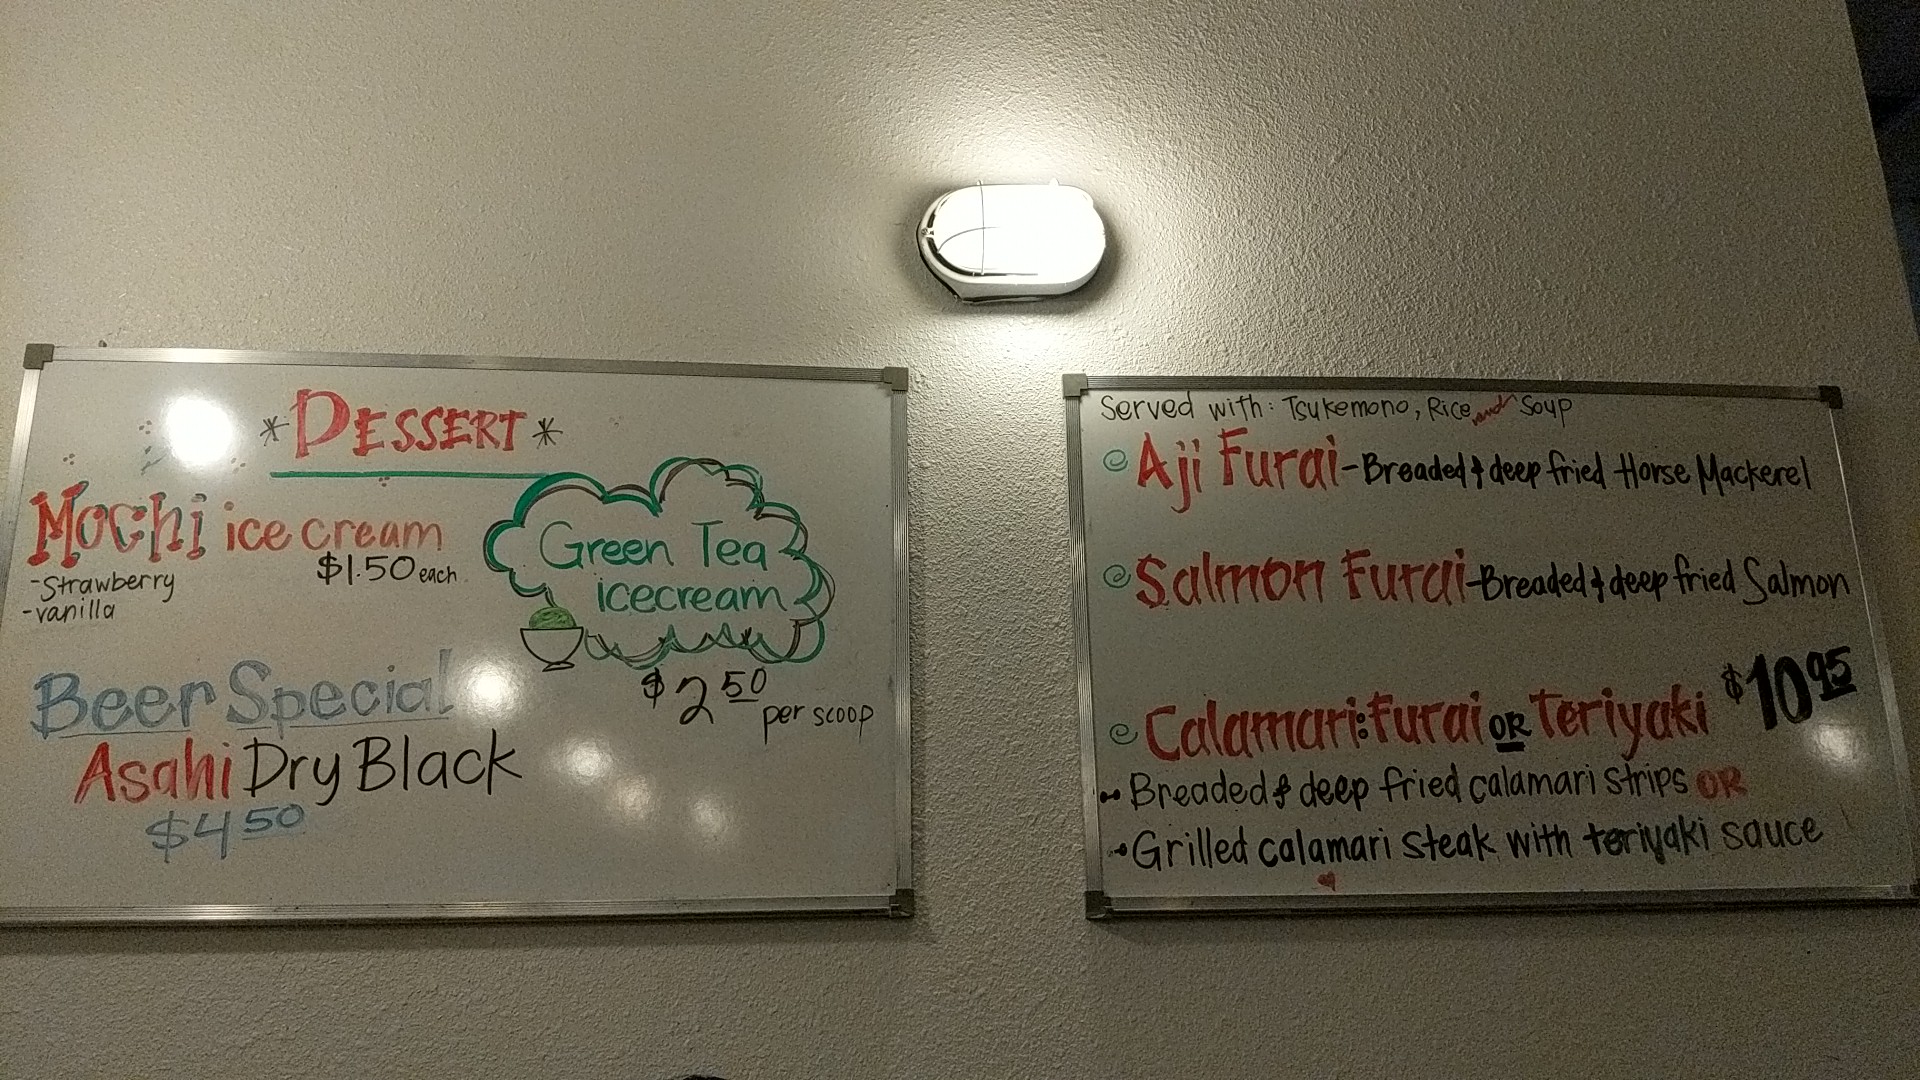 *DESSERT*
Mochi ice cream
$1.50 each
-Strawberry
-vanilla
Green Tea
icecream
$2 50
per scoop
Beer Special
Asahi Dry Black
$4 50
Served with: Tsukemono, Rice and Soup
Aji Furai-Breaded & deep fried Horse Mackerel
Salmon Furai-Breaded & deep fried Salmon
Calamari: Furai OR Teriyaki $10 95
Breaded & deep fried calamari strips OR
Grilled calamari steak with teriyaki sauce